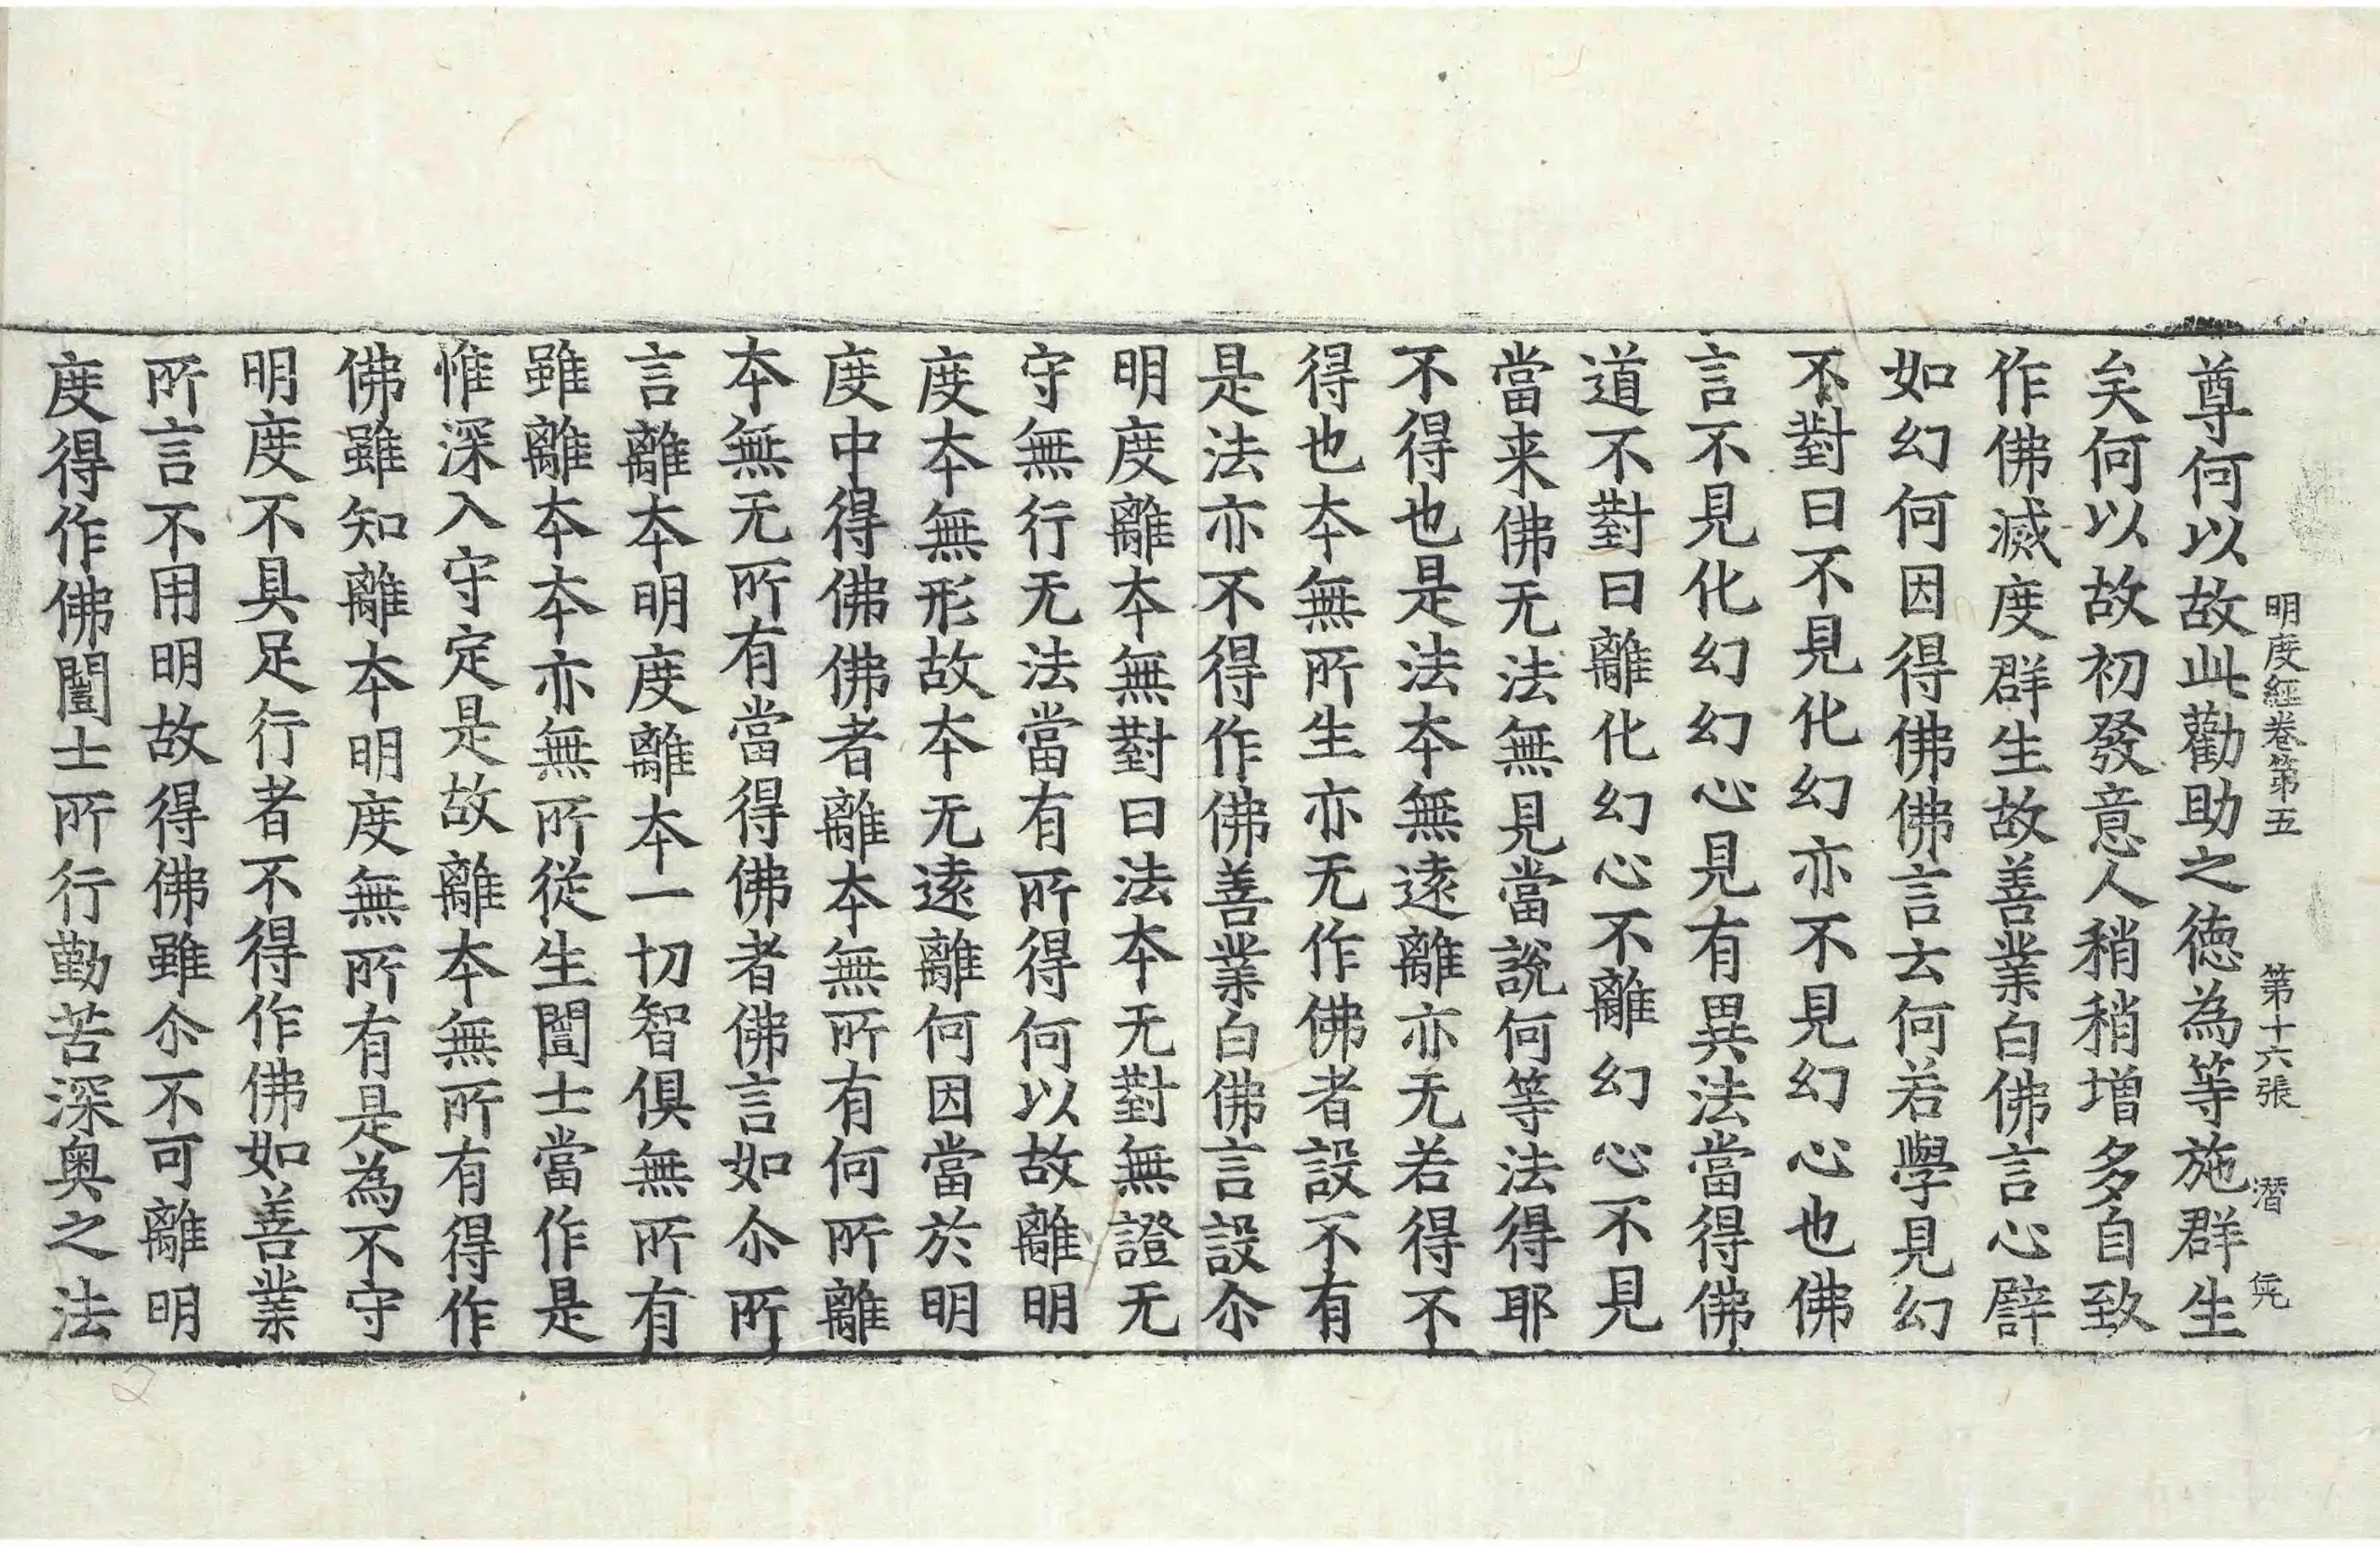 明度經卷第五 第十六張 潛 㒰
尊何以故此勸助之德為等施群生
矣何以故初發意人稍稍增多自致
作佛滅度群生故善業白佛言心譬
如幻何因得佛佛言云何若學見幻
不對曰不見化幻亦不見幻心也佛
言不見化幻幻心見有異法當得佛
道不對曰離化幻心不離幻心不見
當来佛无法無見當說何等法得耶
不得也是法夲無遠離亦无若得不
得也夲無所生亦无作佛者設不有
是法亦不得作佛善業白佛言設尒
明度離夲無對曰法夲无對無證无
守無行无法當有所得何以故離明
度夲無形故夲无遠離何因當於明
度中得佛佛者離夲無所有何所離
夲無无所有當得佛者佛言如尒所
言離夲明度離夲一切智俱無所有
雖離夲夲亦無所從生闓士當作是
惟深入守定是故離夲無所有得作
佛雖知離夲明度無所有是為不守
明度不具足行者不得作佛如善業
所言不用明故得佛雖尒不可離明
度得作佛闓士所行勤苦深奧之法